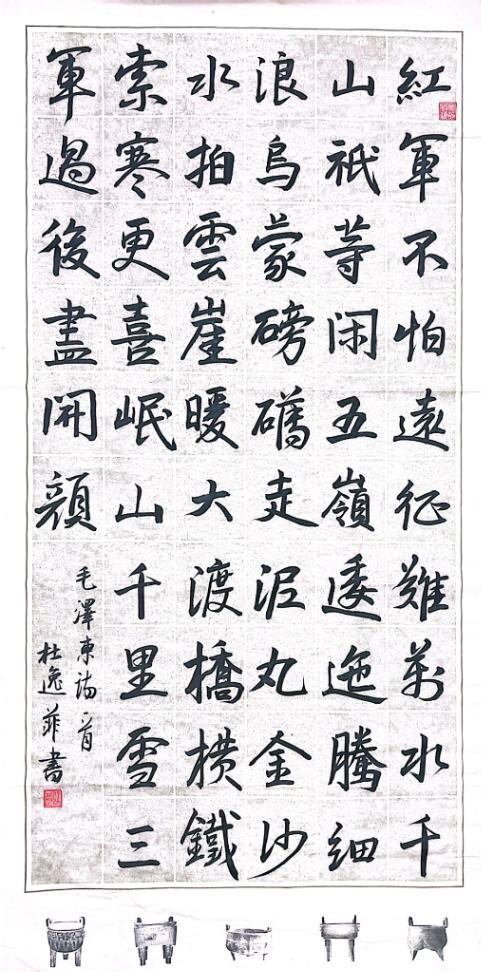 紅軍不怕遠征難萬水千
山祇等閑五嶺逶迤騰細
浪烏蒙磅礴走泥丸金沙
水拍雲崖暖大渡橋横鐵
索寒更喜岷山千里雪三
軍過後盡開顏
毛澤東詩一首
杜逸菲書